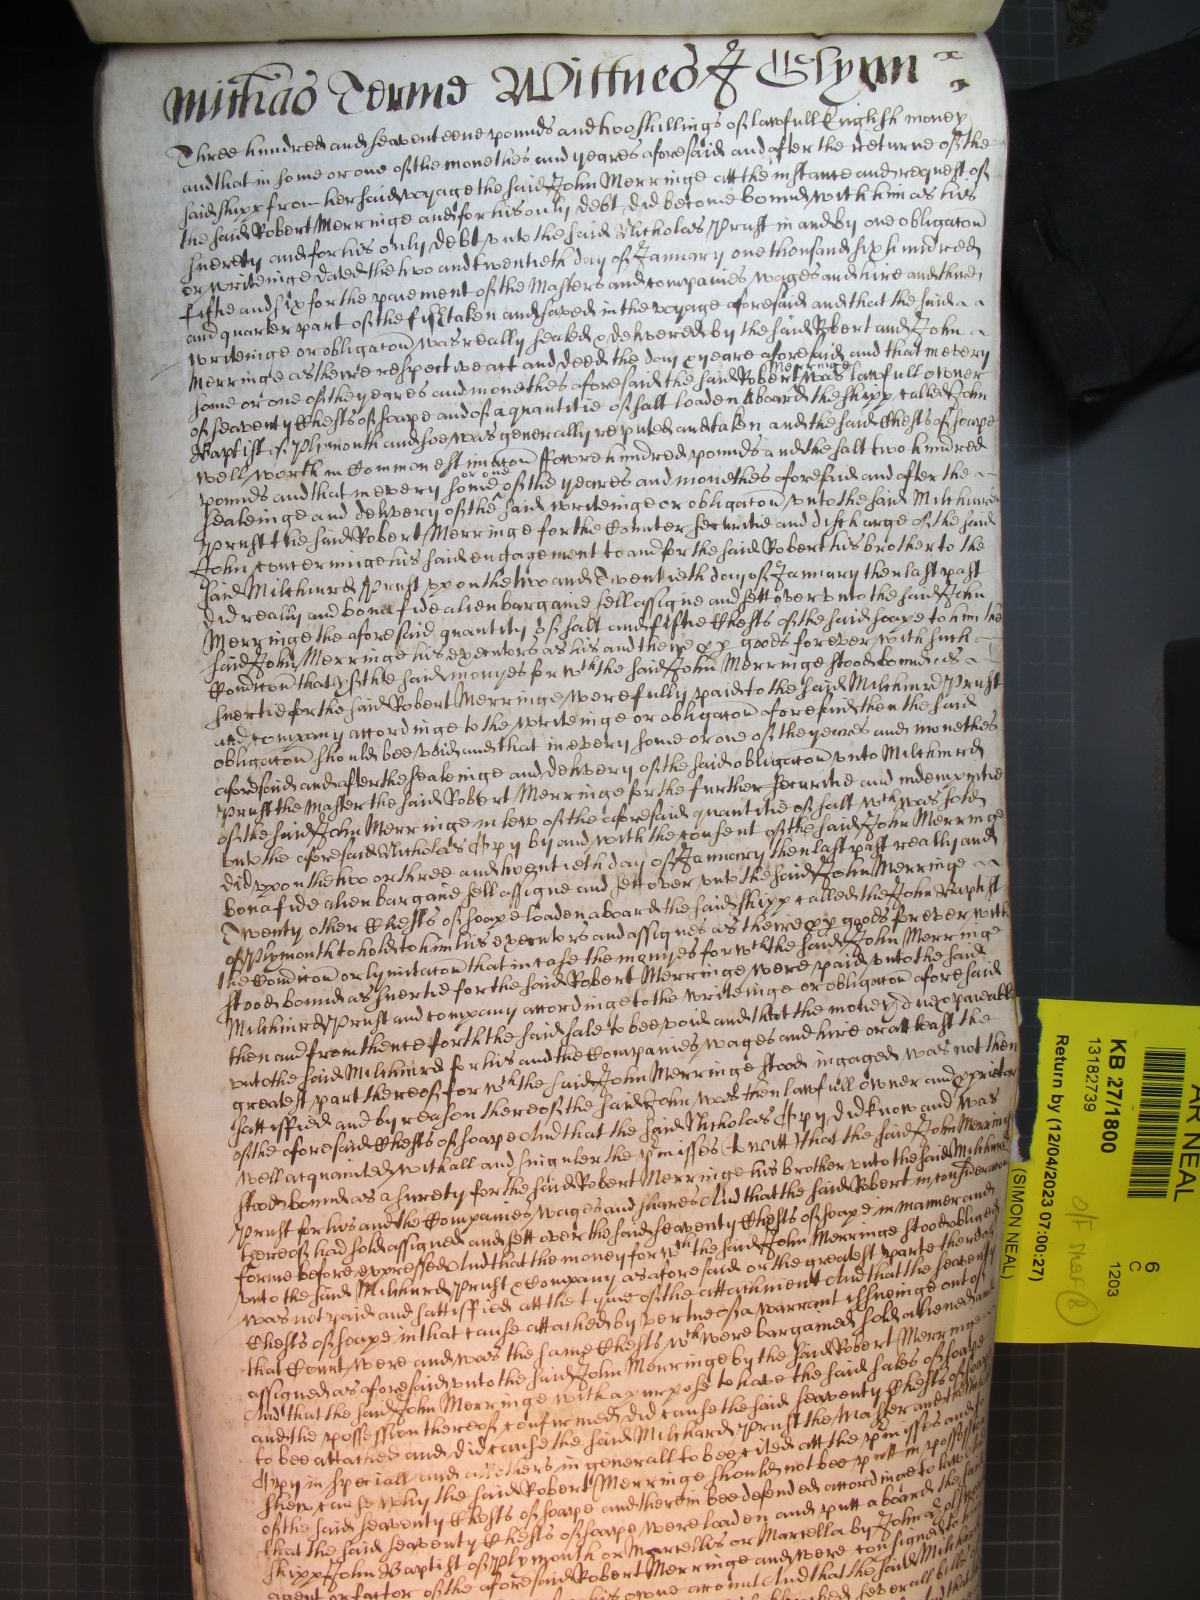 Michas Terme Wittnes J Glynn
Three hundred and seaventeene pounds and two shillings of lawfull English money
and that in some or one of the monethes and yeares aforesaid and after the returne of the
said shipp from her said voyage the said John Merringe att the instance and request of
the said Robert Merringe and for his only debt did become bound with him as his
suerety and for his only debt unto the said Nicholas Prust in and by one obligacon
or writeinge dated the two and twentieth day of January one thousand six hundred
fiftie and six for the paiement of the Masters and companies wages and hire and third
and quarter part of the fish taken and saved in the voyage aforesaid and that the said
writeinge or obligacon was really sealed & delivered by the said Robert and John
Merringe as theire respective act and deed the day & yeare aforesaid and that in every
some or one of the yeares and monethes aforesaid the said Robert Merringe was lawfull owner
of seaventy Chests of soape and of a quantitie of salt loaden aboard the shipp called John
Baptist of Plymouth and soe was generally reputed and taken and the said Chests of soape
well worth in Common estimacon fowre hundred pounds and the salt two hundred
pounds and that in every some or one of the yeares and monethes aforesaid and after the
sealeinge and delivery of the said writeinge or obligacon unto the said Milchiard
Prust the said Robert Merringe for the Counter securitie and discharge of the said
John concerninge his said engagement to and for the said Robert his brother to the
said Milchiard Prust upon the two and Twentieth day of January then last past
did really and bona fide alien bargaine sell assigne and sett over unto the said John
Merringe the aforesaid quantity of salt and fiftie Chests of the said soape to him the
said John Merringe his executors as his and theire pp goods forever with such
Condicon that if the said monyes for wch the said John Merringe stood bound as
suertie for the said Robert Merringe were fully paid to the said Milchiard Prust
and company accordinge to the writeinge or obligacon aforesaid then the said
obligacon should bee void and that in every some or one of the yeares and monethes
aforesaid and after the sealeinge and delivery of the said obligacon unto Milchiard
Prust the Master the said Robert Merringe for the further securitie and indempnitie
of the said John Merringe in lew of the aforesaid quantitie of salt wch was sold
unto the aforesaid Nicholas Opy by and with the consent of the said John Merringe
did upon the two or three and twentieth day of January then last past really and
bona fide alien bargain sell assigne and sett over unto the said John Merringe
Twenty other Chests of soape loaden aboard the said shipp called the John Baptist
of Plymouth to hold to him his executors and assignes as theire pp goods forever with
the Condicon or lymitacon that in case the monyes for wch the said John Merringe
stood bound as suertie for the said Robert Merringe were paid unto the said
Milchiard Prust and company accordinge to the writeinge or obligacon aforesaid
then and from thence forth the said sale to bee void and that the money due & payeable
unto the said Milchiard for his and the Companies wages and hire or att least the
greatest part thereof for wch the said John Merringe stood ingaged was not then
sattisfied and by reason thereof the said John was then lawfull owner and pprietor
of the aforesaid Chests of soape And that the said Nicholas Opy did know and was
well acquainted with all and singuler the pmisses (to witt) that the said John Merringe
stood bound as a surety for the said Robert Merringe his brother unto the said Milchiard
Prust for his and the Companies wages and shares And that the said Robert in consideracon
thereof had sold assigned and sett over the said seaventy Chests of soape in manner and
forme before expressed And that the money for wch the said John Merringe stood obliged
unto the said Milchiard Prust & Company as aforesaid or the greatest parte thereof
was not paid and sattisfied att the tyme of the attachment And that the seaventy
Chests of soape in that cause attached by vertue of a warrant issueinge out of
that Court were and was the same Chests wch were bargained sold aliened and
assigned as aforesaid unto the said John Merringe by the said Robert Merringe
And that the said John Merringe with a purpose to have the said sales of soape
and the possession thereof confirmed did cause the said seaventy Chests of soape
to bee attached and did cause the said Milchiard Prust the Master and
Opy in speciall and all others in generall to bee cited att the pmisses and
shew cause why the said Robert Merringe should not bee putt in possession
of the said seaventy Chests of soape and therein bee defended accordinge to law
that the said seaventy Chests of soape were loaden and putt aboard the said
shipp John Baptist of Plymouth or Marcelles or Marcella by John
agent or factor of the aforesaid Robert Merringe and were consigned to
his owne account And that the said Milchiard
severall bills
AR NEAL
KB 27/1800
13182739
Return by (12/04/2023 07:00:27)
(SIMON NEAL)
6
C
1203